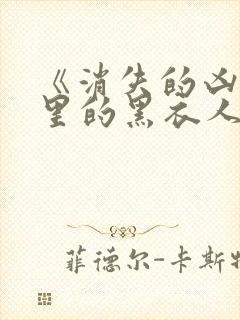 《消失的凶
里的黑衣人
菲德尔-卡斯特